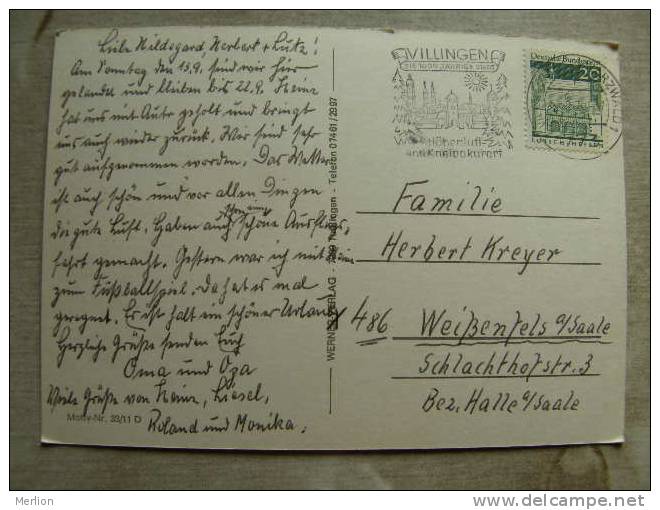 Liebe Hildegard, Herbert + Lutz!
Am Sonntag den 13.9. sind wir hier
gelandet und bleiben bis 22.9. Heinz
hat uns mit Auto geholt und bringt
uns auch wieder zurück. Wir sind sehr
gut aufgenommen worden. Das Wetter
ist auch schön und vor allen Dingen
die gute Luft. Haben auch schon eine schöne Ausflugs-
fahrt gemacht. Gestern war ich mit Heinz
zum Fußballspiel. Da hat es mal
geregnet. Es ist halt ein schöner Urlaub
Herzliche Grüße senden Euch
Oma und Opa
Viele Grüße von Heinz, Liesel,
Roland und Monika.
Motiv-Nr. 33/11 D
WERNER VERLAG - Telefon 07461/2997
VILLINGEN
DIE 1000 JÄHRIGE STADT
Höhenluft-
und Kneippkurort
Deutsche Bundespost
20
LORSCH/HESSEN
Familie
Herbert Kreyer
486 Weißenfels a/Saale
Schlachthofstr. 3
Bez. Halle a/Saale
Merlion
www.delcampe.net